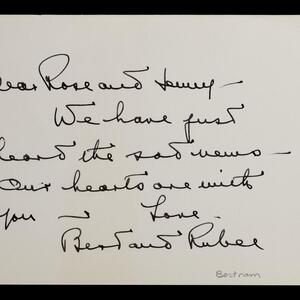 ear Rose and Lenny —
We have just
heard the sad news —
Our hearts are with
you — Love —
Bert and Rubee
Bertram